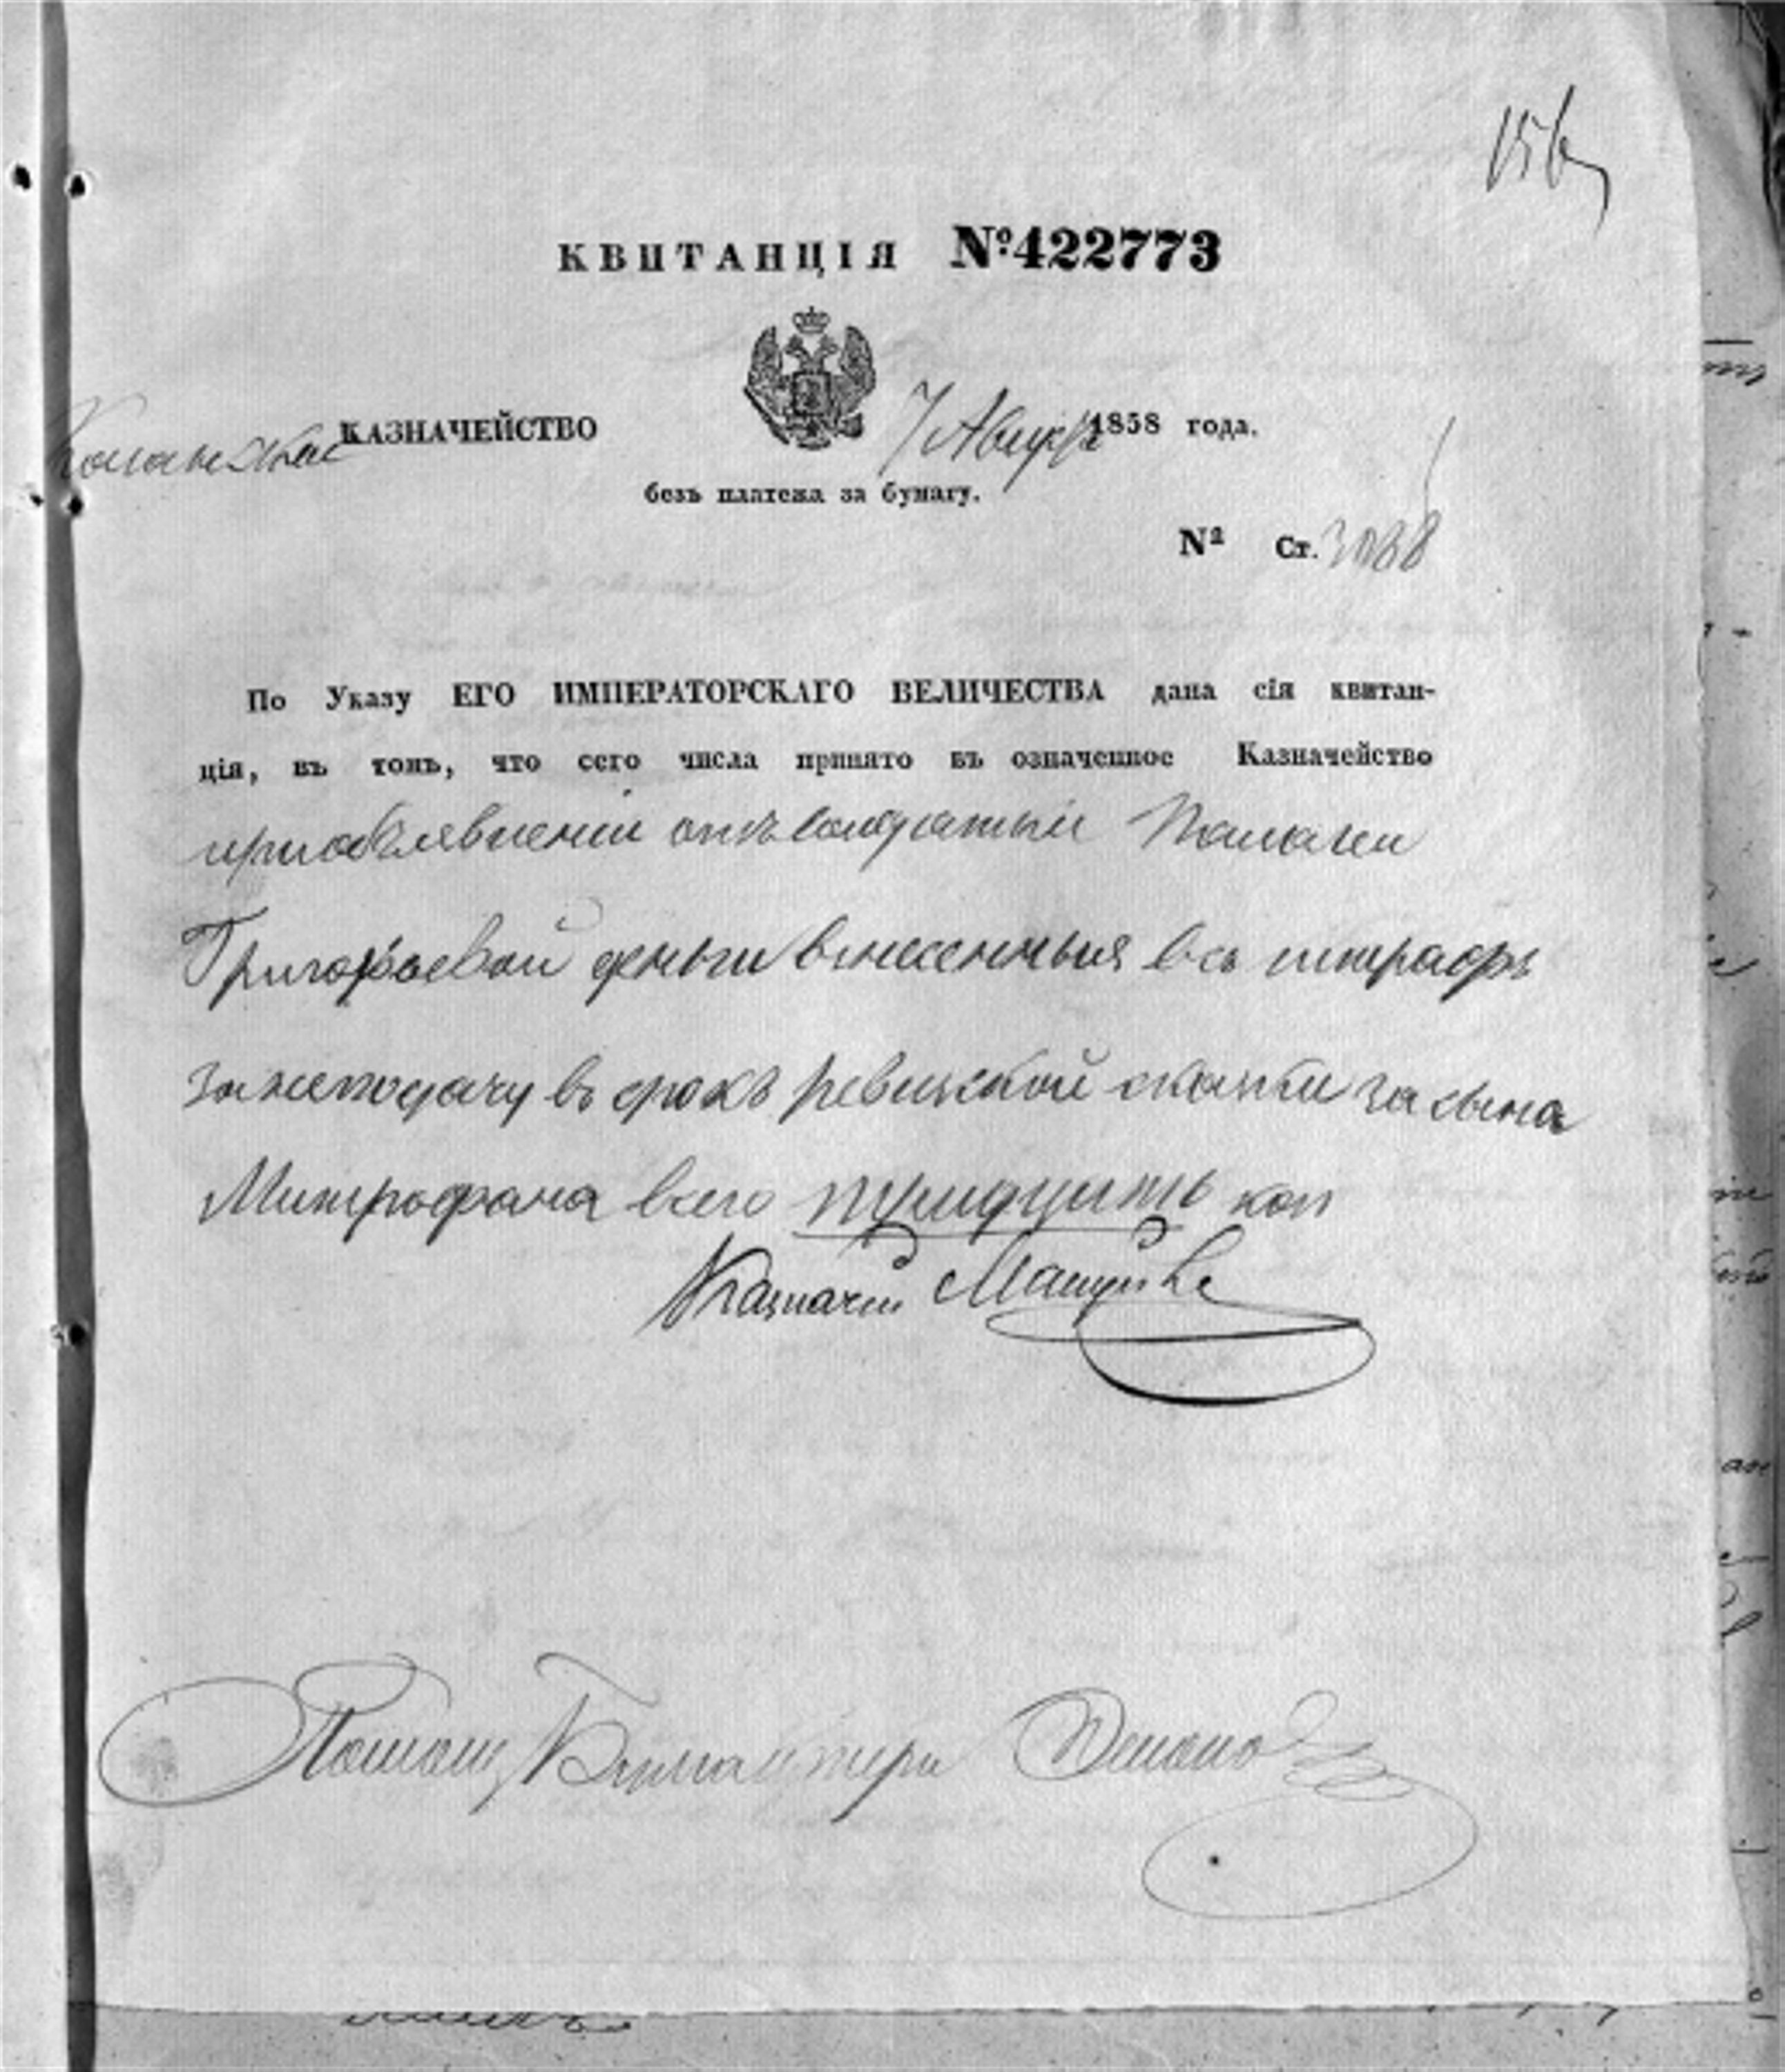 156
КВИТАНЦІЯ №422773
КАЗНАЧЕЙСТВО 7 Авгус 1858 года.
безъ платежа за бумагу.
№ Ст. 3088
По Указу ЕГО ИМПЕРАТОРСКАГО ВЕЛИЧЕСТВА дана сія квитан-
ція, въ томъ, что сего числа принято въ означенное Казначейство
приобъявленіи отъ солдатки Палагеи
Григорьевой деньги внесенныя въ штрафъ
за неподачу въ срокъ ревизской сказки за сына
Митрофана всего тридцать коп
Казначей
Бухгалтера